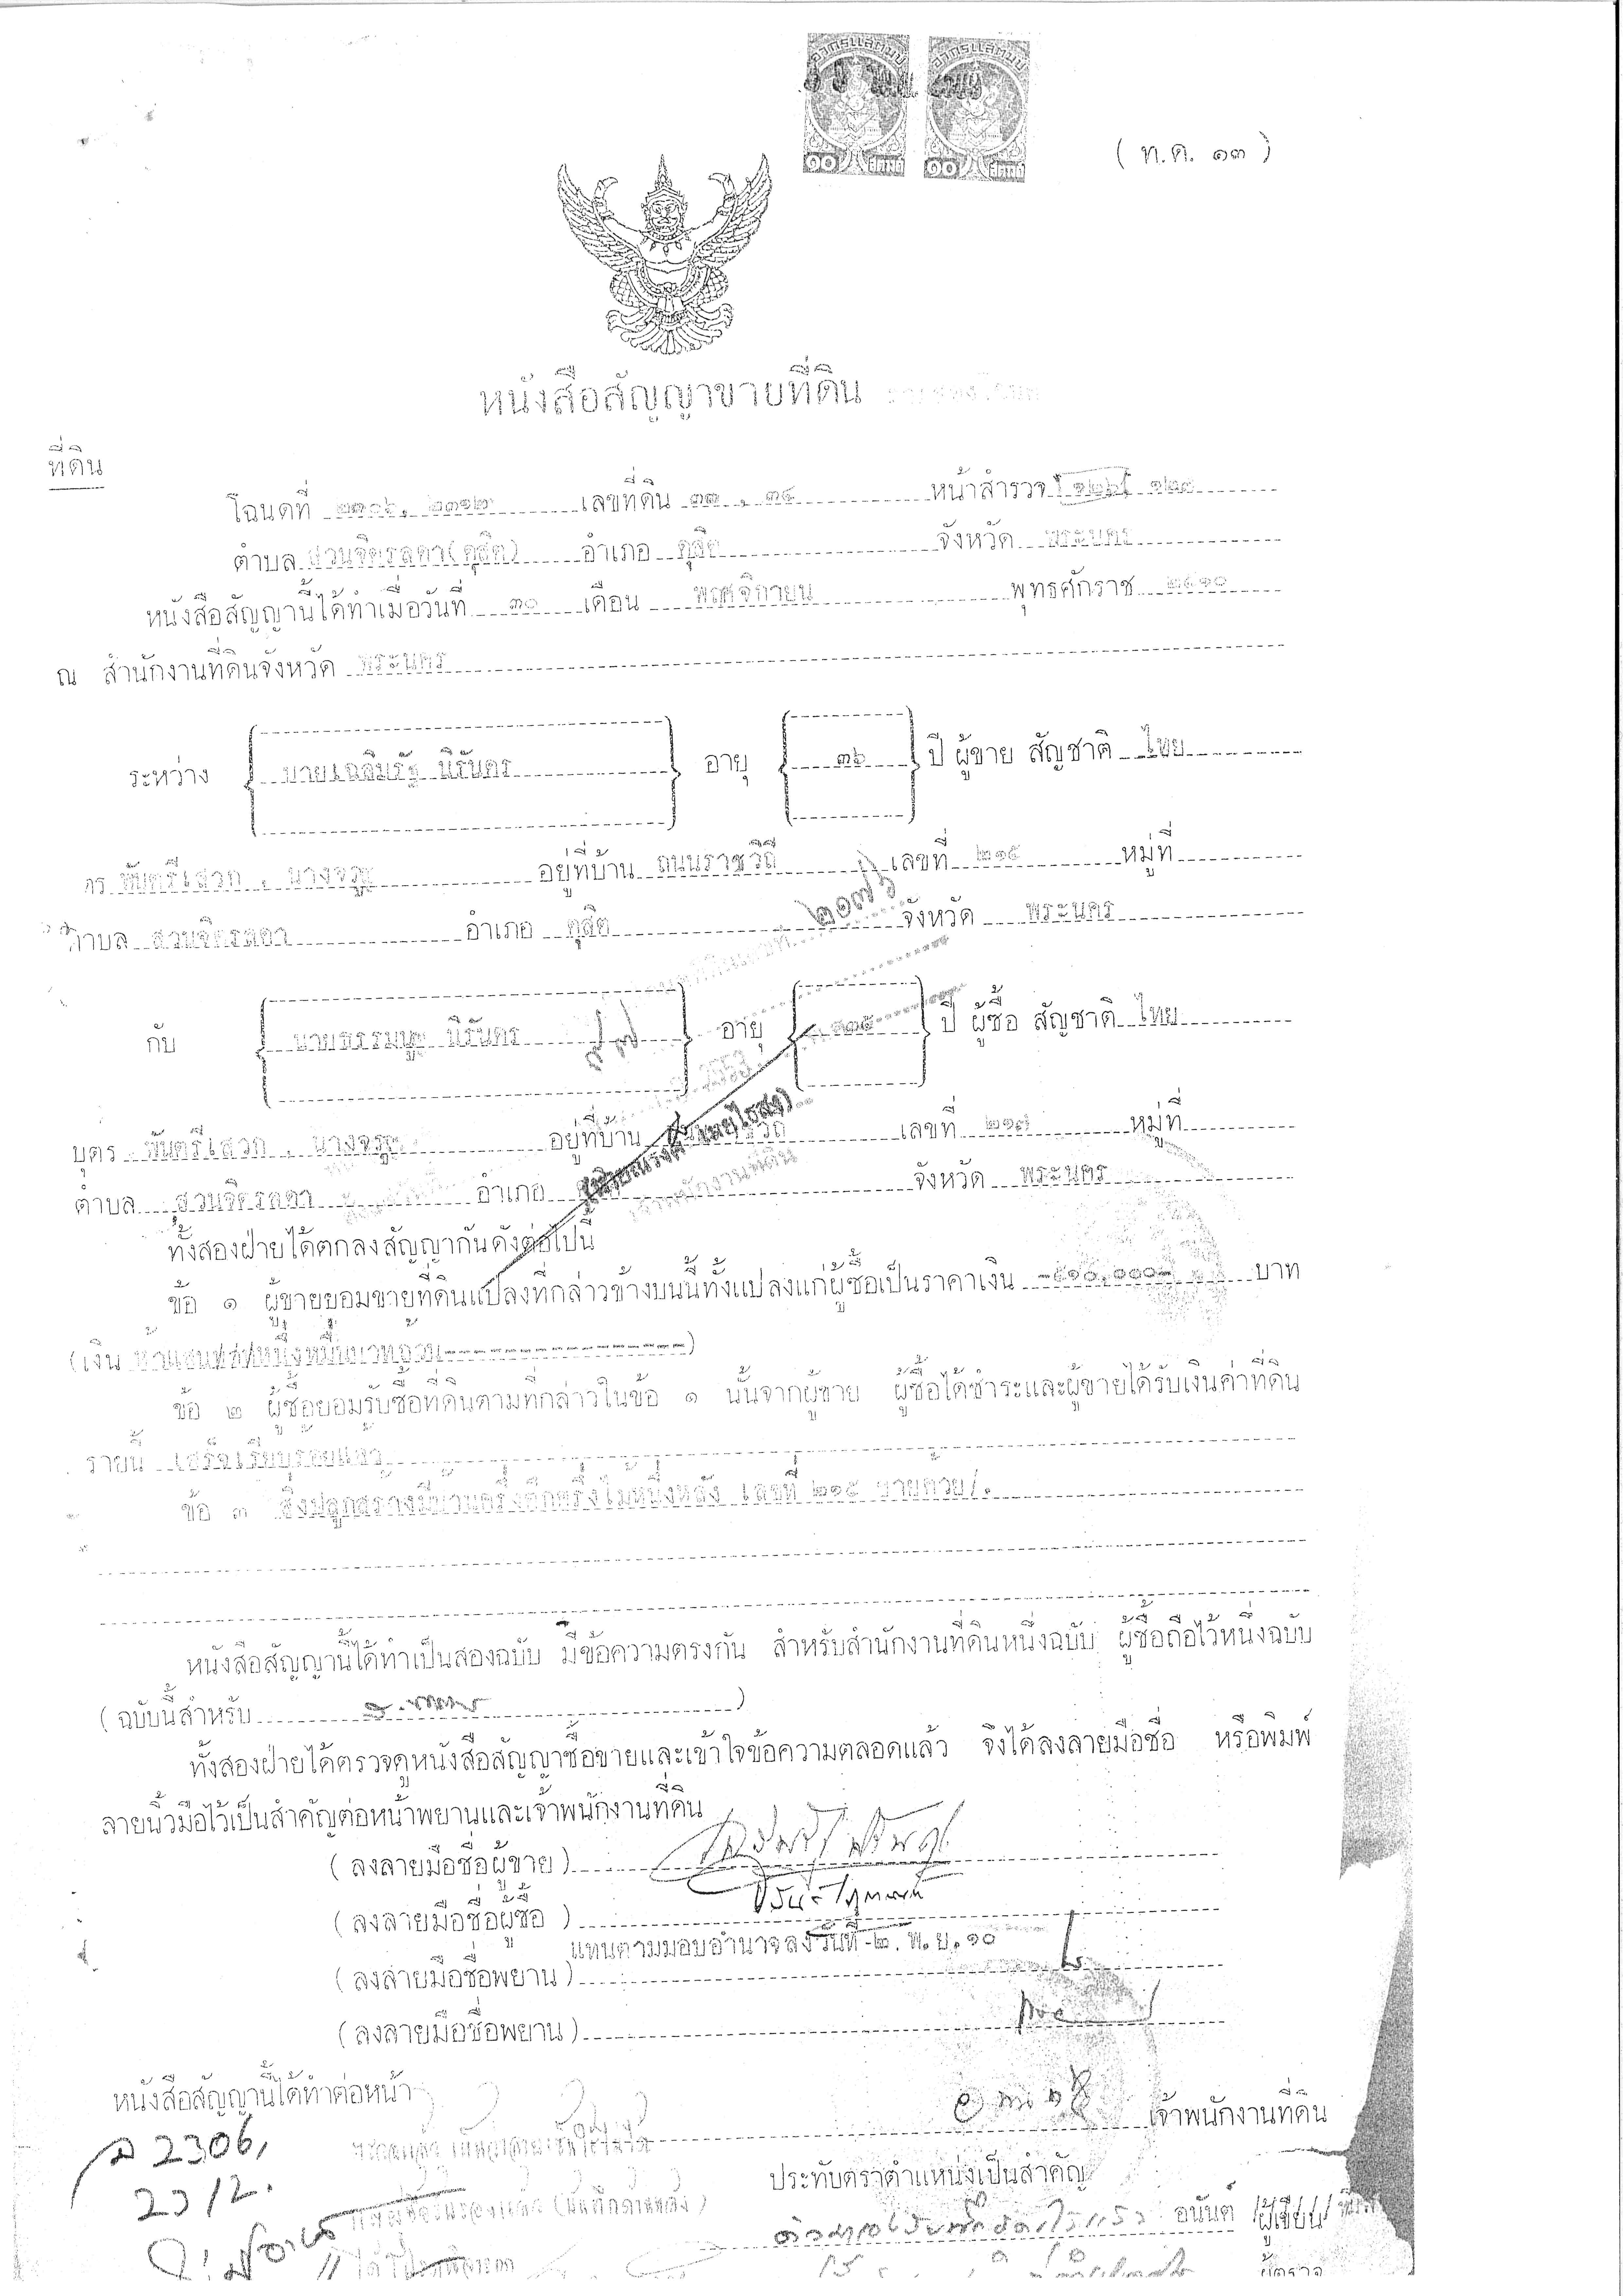 อากรแสตมป์ อากรแสตมป์
๑๐ สตางค์ ๑๐ สตางค์
( ท.ด. ๑๓ )
หนังสือสัญญาขายที่ดิน
ที่ดิน
โฉนดที่ ๒๓๐๖, ๒๓๑๒ เลขที่ดิน ๓๓ , ๓๔ หน้าสำรวจ ๑๒๖ ๑๒๗
ตำบล สวนจิตรลดา(ดุสิต) อำเภอ ดุสิต จังหวัด พระนคร
หนังสือสัญญานี้ได้ทำเมื่อวันที่ ๓๐ เดือน พฤศจิกายน พุทธศักราช ๒๕๑๐
ณ สำนักงานที่ดินจังหวัด พระนคร
ระหว่าง นายเฉลิมรัฐ นิรันดร อายุ ๓๖ ปี ผู้ขาย สัญชาติ ไทย
พันตรีเสวก , นางจรูญ อยู่ที่บ้าน ถนนราชวิถี เลขที่ ๒๑๕ หมู่ที่
ตำบล สวนจิตรลดา อำเภอ ดุสิต จังหวัด พระนคร
๒๑๗๖
กับ นายธรรมนูญ นิรันดร อายุ ปี ผู้ซื้อ สัญชาติ ไทย
บุตร พันตรีเสวก , นางจรูญ อยู่ที่บ้าน เลขที่ ๒๑๗ หมู่ที่
ตำบล สวนจิตรลดา อำเภอ จังหวัด พระนคร
เจ้าพนักงานที่ดิน
ทั้งสองฝ่ายได้ตกลงสัญญากันดังต่อไปนี้
ข้อ ๑ ผู้ขายยอมขายที่ดินแปลงที่กล่าวข้างบนนี้ทั้งแปลงแก่ผู้ซื้อเป็นราคาเงิน -๕๑๐,๐๐๐- บาท
(เงิน ห้าแสนหนึ่งหมื่นบาทถ้วน---------------)
ข้อ ๒ ผู้ซื้อยอมรับซื้อที่ดินตามที่กล่าวในข้อ ๑ นั้นจากผู้ขาย ผู้ซื้อได้ชำระและผู้ขายได้รับเงินค่าที่ดิน
รายนี้ เสร็จเรียบร้อยแล้ว
ข้อ ๓ สิ่งปลูกสร้างมีบ้านครึ่งตึกครึ่งไม้หนึ่งหลัง เลขที่ ๒๑๕ ขายด้วย/.
หนังสือสัญญานี้ได้ทำเป็นสองฉบับ มีข้อความตรงกัน สำหรับสำนักงานที่ดินหนึ่งฉบับ ผู้ซื้อถือไว้หนึ่งฉบับ
( ฉบับนี้สำหรับ )
ทั้งสองฝ่ายได้ตรวจดูหนังสือสัญญาซื้อขายและเข้าใจข้อความตลอดแล้ว จึงได้ลงลายมือชื่อ หรือพิมพ์
ลายนิ้วมือไว้เป็นสำคัญต่อหน้าพยานและเจ้าพนักงานที่ดิน
( ลงลายมือชื่อผู้ขาย )
( ลงลายมือชื่อผู้ซื้อ )
แทนตามมอบอำนาจลงวันที่ ๒. พ.ย. ๑๐
( ลงลายมือชื่อพยาน )
( ลงลายมือชื่อพยาน )
หนังสือสัญญานี้ได้ทำต่อหน้า เจ้าพนักงานที่ดิน
2306,
2312.
ประทับตราตำแหน่งเป็นสำคัญ
อนันต์ ผู้เขียน
ผู้ตรวจ